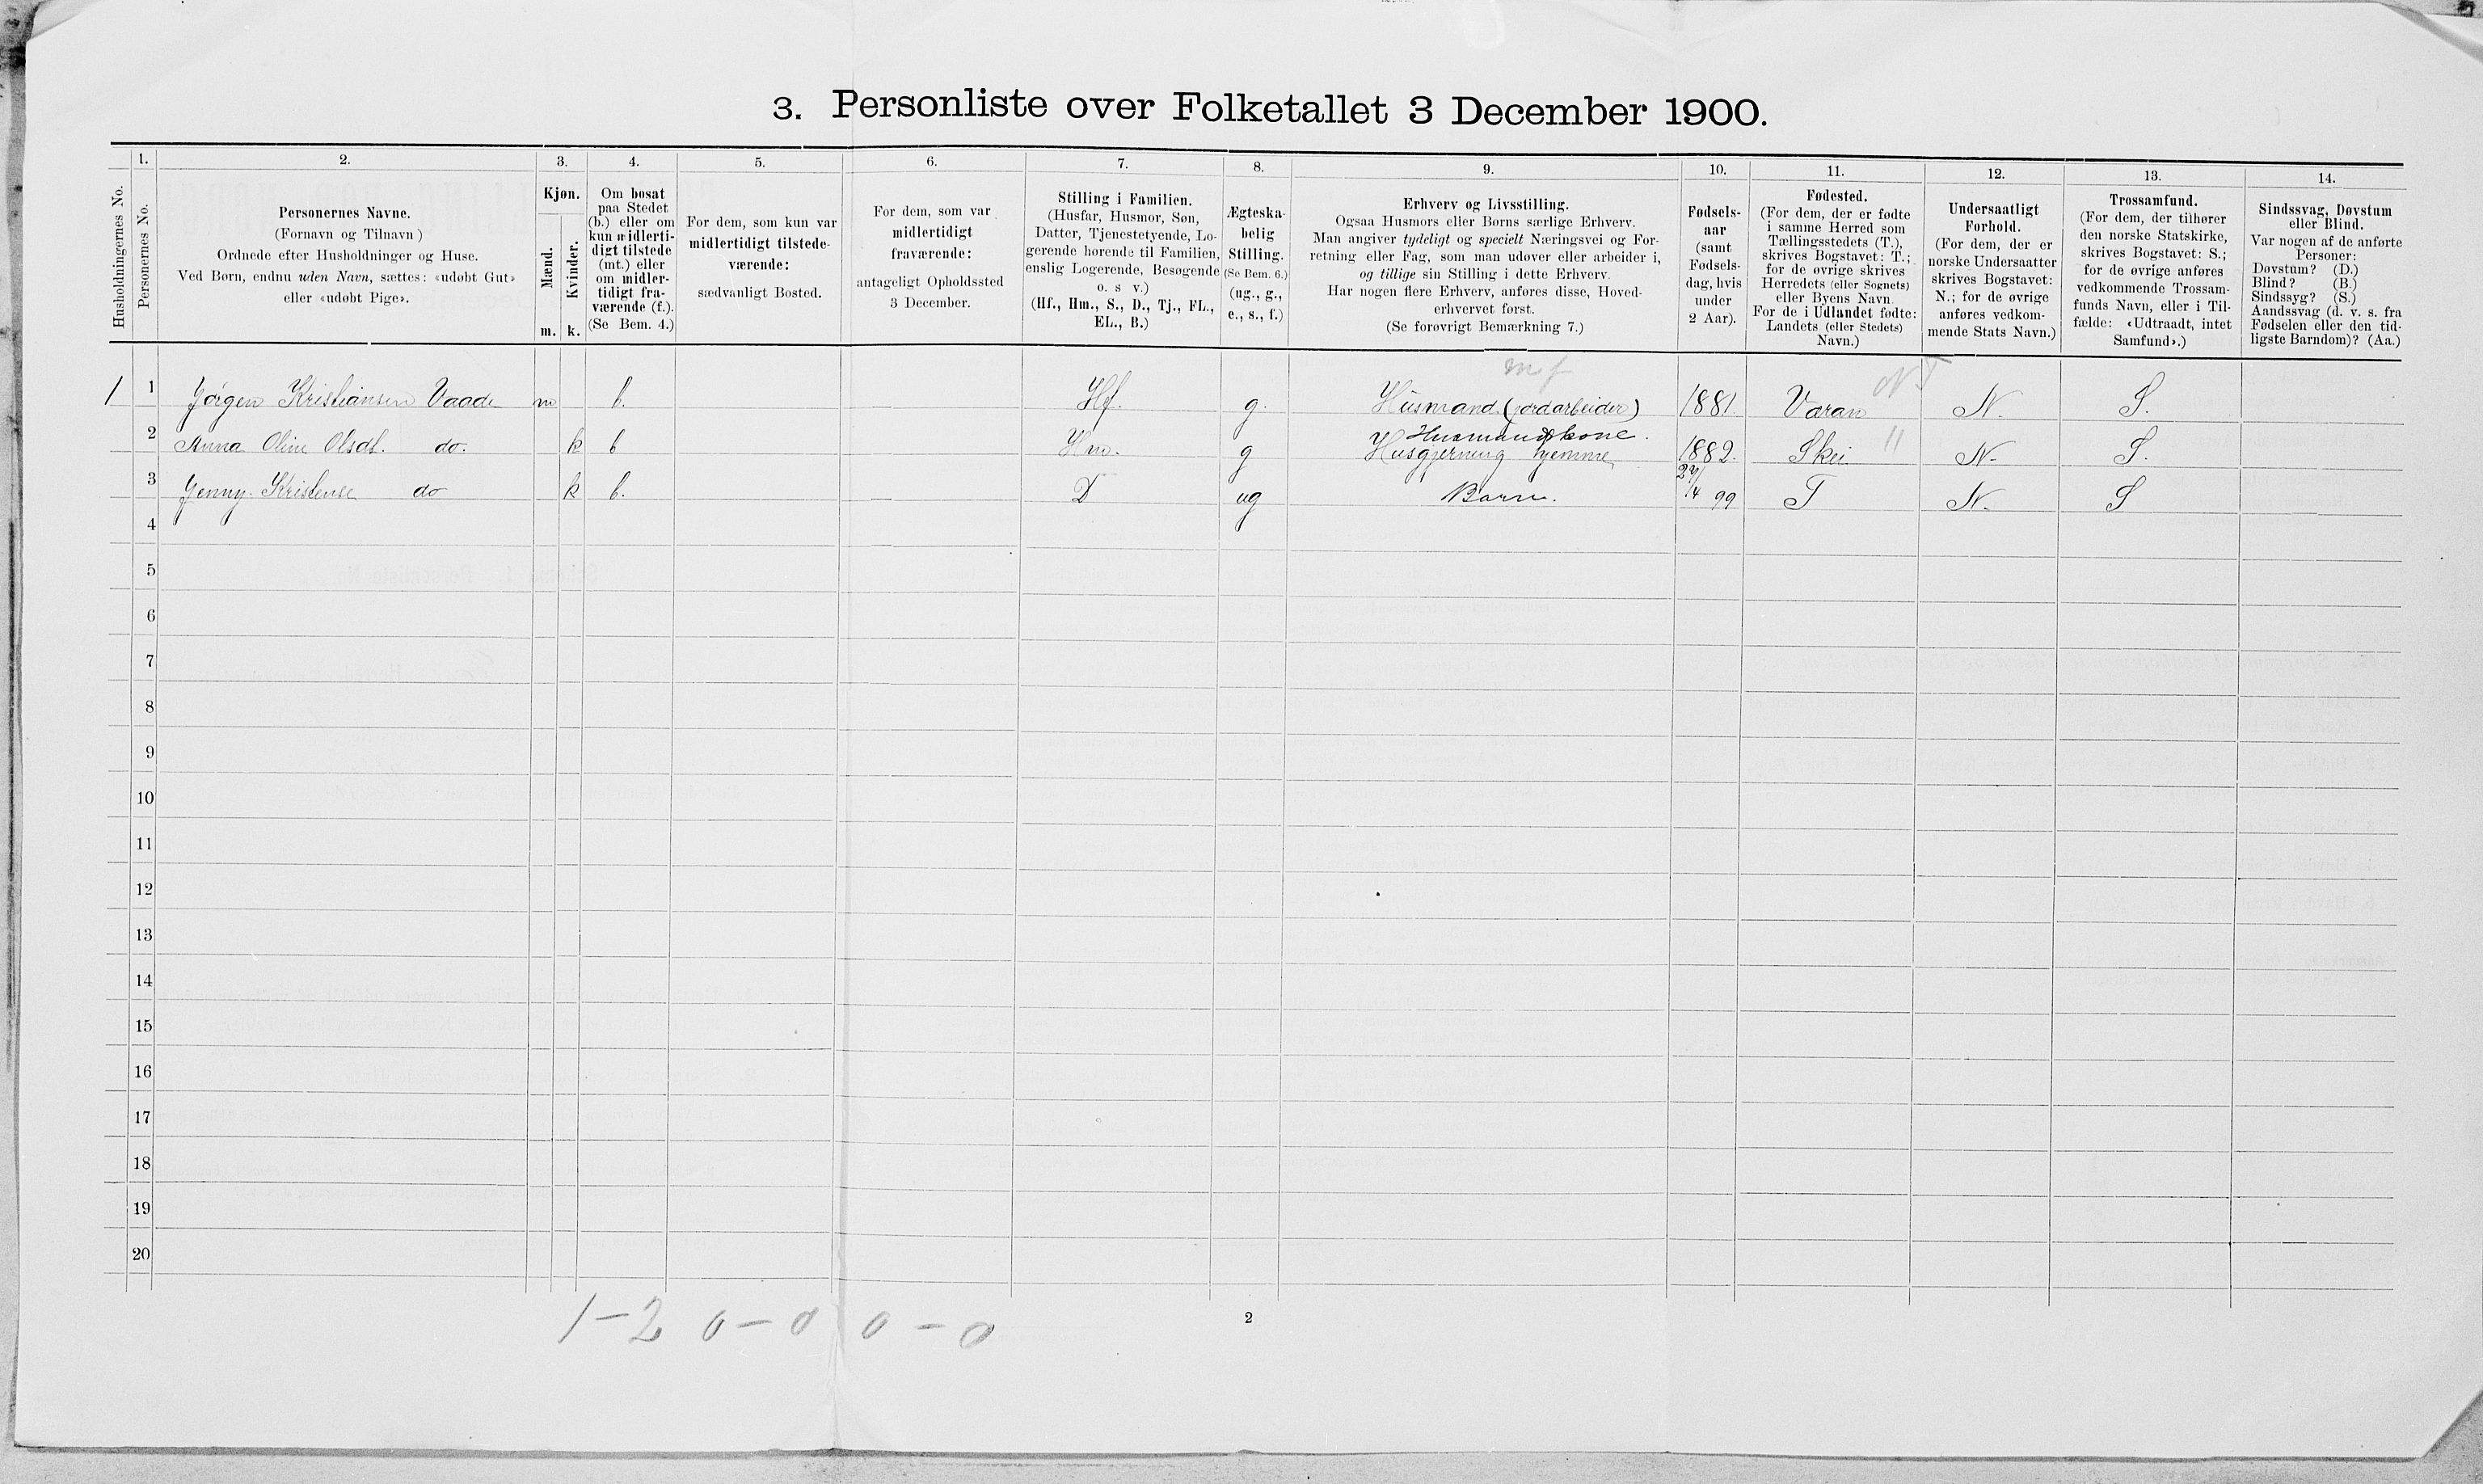 3. Personliste over Folketallet 3 December 1900.
1. 2. 3. 4. 5. 6. 7. 8. 9. 10. 11. 12. 13. 14.
Husholdningernes No.
Personernes No.
Personernes Navne.
(Fornavn og Tilnavn)
Ordnede efter Husholdninger og Huse.
Ved Børn, endnu uden Navn, sættes: «udøbt Gut»
eller «udøbt Pige».
Kjøn.
Mænd.
Kvinder.
m. k.
Om bosat
paa Stedet
(b.) eller om
kun midlerti-
digt tilstede
(mt.) eller
om midler-
tidigt fra-
værende (f.).
(Se Bem. 4.)
For dem, som kun var
midlertidigt tilstede-
værende:
sædvanligt Bosted.
For dem, som var
midlertidigt
fraværende:
antageligt Opholdssted
3 December.
Stilling i Familien.
(Husfar, Husmor, Søn,
Datter, Tjenestetyende, Lo-
gerende hørende til Familien,
enslig Logerende, Besøgende
o. s v.)
(Hf., Hm., S., D., Tj., FL.,
EL., B.)
Ægteska-
belig
Stilling.
(Se Bem. 6.)
(ug., g.,
e., s., f.)
Erhverv og Livsstilling.
Ogsaa Husmors eller Børns særlige Erhverv.
Man angiver tydeligt og specielt Næringsvei og For-
retning eller Fag, som man udøver eller arbeider i,
og tillige sin Stilling i dette Erhverv.
Har nogen flere Erhverv, anføres disse, Hoved-
erhvervet først.
(Se forøvrigt Bemærkning 7.)
Fødsels-
aar
(samt
Fødsels-
dag, hvis
under
2 Aar).
Fødested.
(For dem, der er fødte
i samme Herred som
Tællingsstedets (T.),
skrives Bogstavet: T.;
for de øvrige skrives
Herredets (eller Sognets)
eller Byens Navn.
For de i Udlandet fødte:
Landets (eller Stedets)
Navn.)
Undersaatligt
Forhold.
(For dem, der er
norske Undersaatter
skrives Bogstavet:
N.; for de øvrige
anføres vedkom-
mende Stats Navn.)
Trossamfund.
(For dem, der tilhører
den norske Statskirke,
skrives Bogstavet: S.;
for de øvrige anføres
vedkommende Trossam-
funds Navn, eller i Til-
fælde: «Udtraadt, intet
Samfund».)
Sindssvag, Døvstum
eller Blind.
Var nogen af de anførte
Personer:
Døvstum? (D.)
Blind? (B.)
Sindssyg? (S.)
Aandssvag (d. v. s. fra
Fødselen eller den tid-
ligste Barndom)? (Aa.)
m f NT
1 1 Jørgen Kristiansen Vaade m b. Hf. g. Husmand (jordarbeider) 1881 Varan N. S.
Husmandskone.
2 Anna Oline Olsdt. do. k b Hm. g Husgjerning hjemme 1882. Skei 11 N. S.
3 Jenny Kristense do k b. D ug Barn. 24/4 99 T N. S
4
5
6
7
8
9
10
11
12
13
14
15
16
17
18
19
20
1-2 0-0 0-0
2